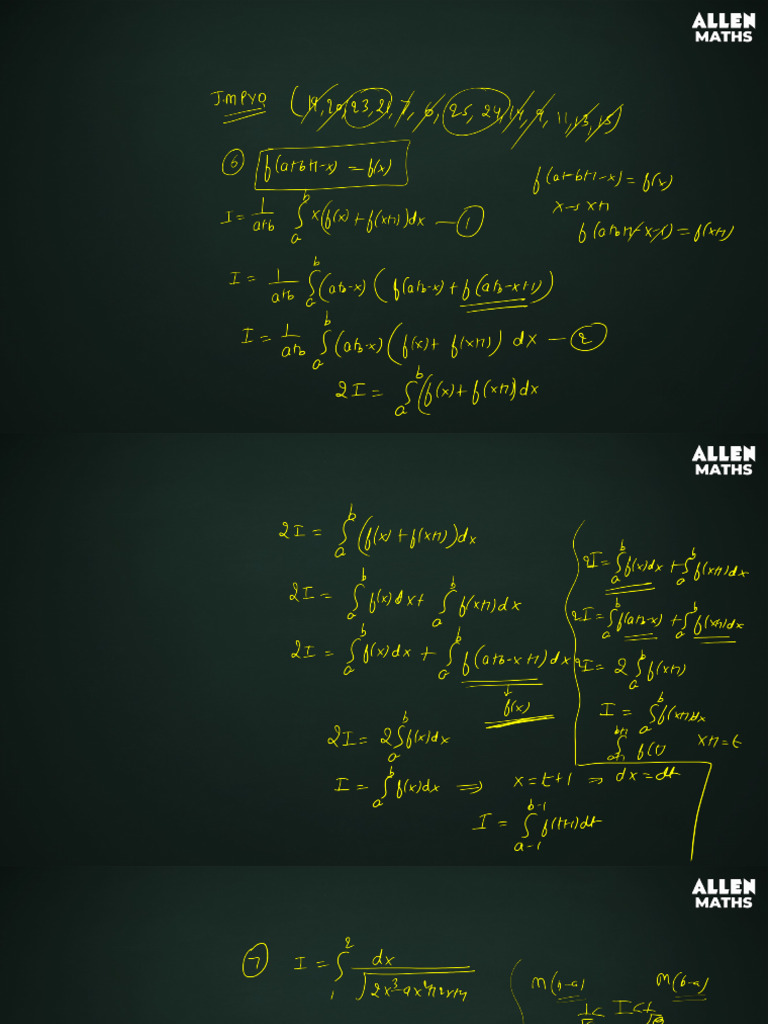 ALLEN
MATHS
J.M PYQ (19, 20, 23, 21, 7, 6, 25, 24, 14, 9, 11, 13, 15)
⑥ f(a+b+1-x) = f(x)
f(a+b+1-x) = f(x)
x→x+1
f(a+b+1-x-1) = f(x+1)
I = 1/(a+b) ∫_a^b x(f(x) + f(x+1))dx — ①
I = 1/(a+b) ∫_a^b (a+b-x) (f(a+b-x) + f(a+b-x+1))
I = 1/(a+b) ∫_a^b (a+b-x) (f(x) + f(x+1)) dx — ②
2I = ∫_a^b (f(x) + f(x+1))dx
ALLEN
MATHS
2I = ∫_a^b (f(x) + f(x+1))dx
2I = ∫_a^b f(x)dx + ∫_a^b f(x+1)dx
2I = ∫_a^b f(x)dx + ∫_a^b f(a+b-x+1)dx
↓
f(x)
2I = 2∫_a^b f(x)dx
I = ∫_a^b f(x)dx ⇒ x = t+1 ⇒ dx = dt
I = ∫_{a-1}^{b-1} f(t+1)dt
2I = ∫_a^b f(x)dx + ∫_a^b f(x+1)dx
2I = ∫_a^b f(a+b-x) + ∫_a^b f(x+1)dx
2I = 2∫_a^b f(x+1)
I = ∫_a^b f(x+1)dx
∫_{a+1}^{b+1} f(t) x+1=t
ALLEN
MATHS
⑦ I = ∫_1^2 dx/√(2x³-9x²+12x+4)
m(b-a) M(b-a)